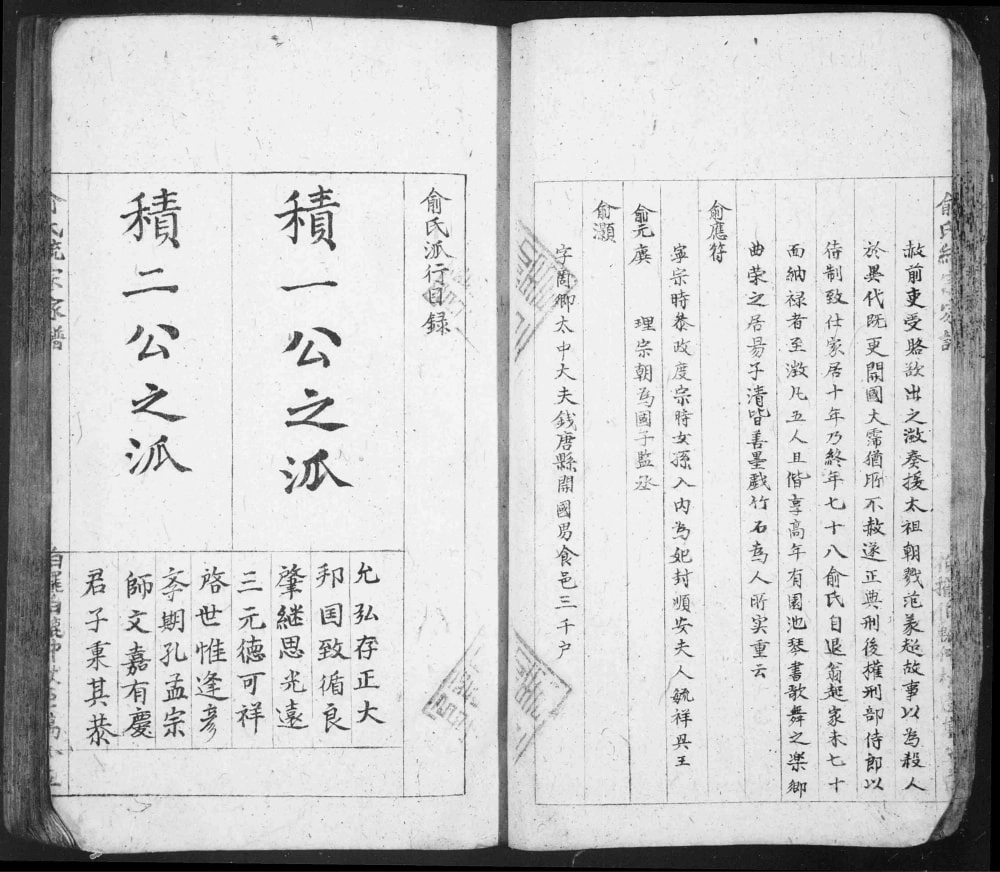 赦前吏受賂欲出之澂奏援太祖朝戮范義超故事以為殺人
於異代既更開國大霈猶所不赦遂正典刑後權刑部侍郎以
待制致仕家居十年乃終年七十八俞氏自退翁起家未七十
而納禄者至澂凡五人且偕享高年有園池琴書歌舞之樂鄉
曲荣之居易子清皆善墨戲竹石為人所宲重云
俞應符
寧宗時叅政度宗時女孫入内為妃封順安夫人毓祥興王
俞元廙 理宗朝為國子監丞
俞灝
字商卿太中大夫錢唐縣開國男食邑三千户
俞氏派行目録
積一公之派
積二公之派
允弘存正大
邦国致循良
肇继思光遠
三元德可祥
啓世惟逢彦
孝期孔孟宗
師文嘉有慶
君子秉其恭
俞氏統宗家譜